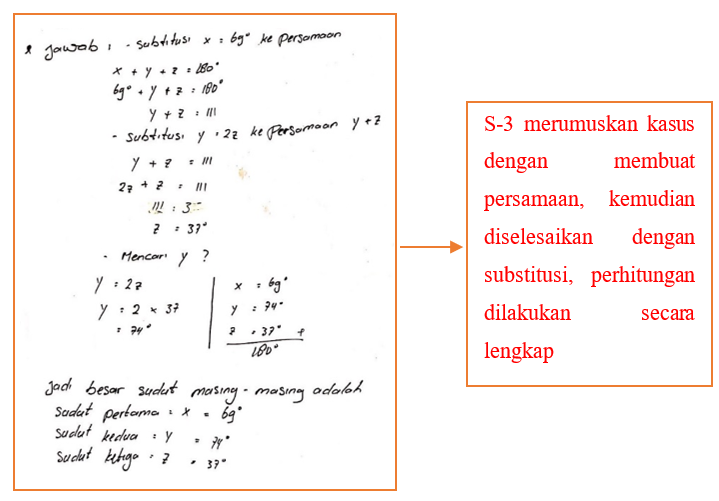 Jawab : - substitusi x = 69° ke persamaan
x + y + z = 180°
69° + y + z = 180°
y + z = 111
- substitusi y = 2z ke persamaan y + z
y + z = 111
2z + z = 111
111 = 3
z = 37°
- Mencari y ?
y = 2z
y = 2 × 37
= 74°
x = 69°
y = 74°
z = 37° +
180°
Jadi besar sudut masing - masing adalah
sudut pertama = x = 69°
sudut kedua = y = 74°
sudut ketiga = z = 37°
S-3 merumuskan kasus
dengan membuat
persamaan, kemudian
diselesaikan dengan
substitusi, perhitungan
dilakukan secara
lengkap